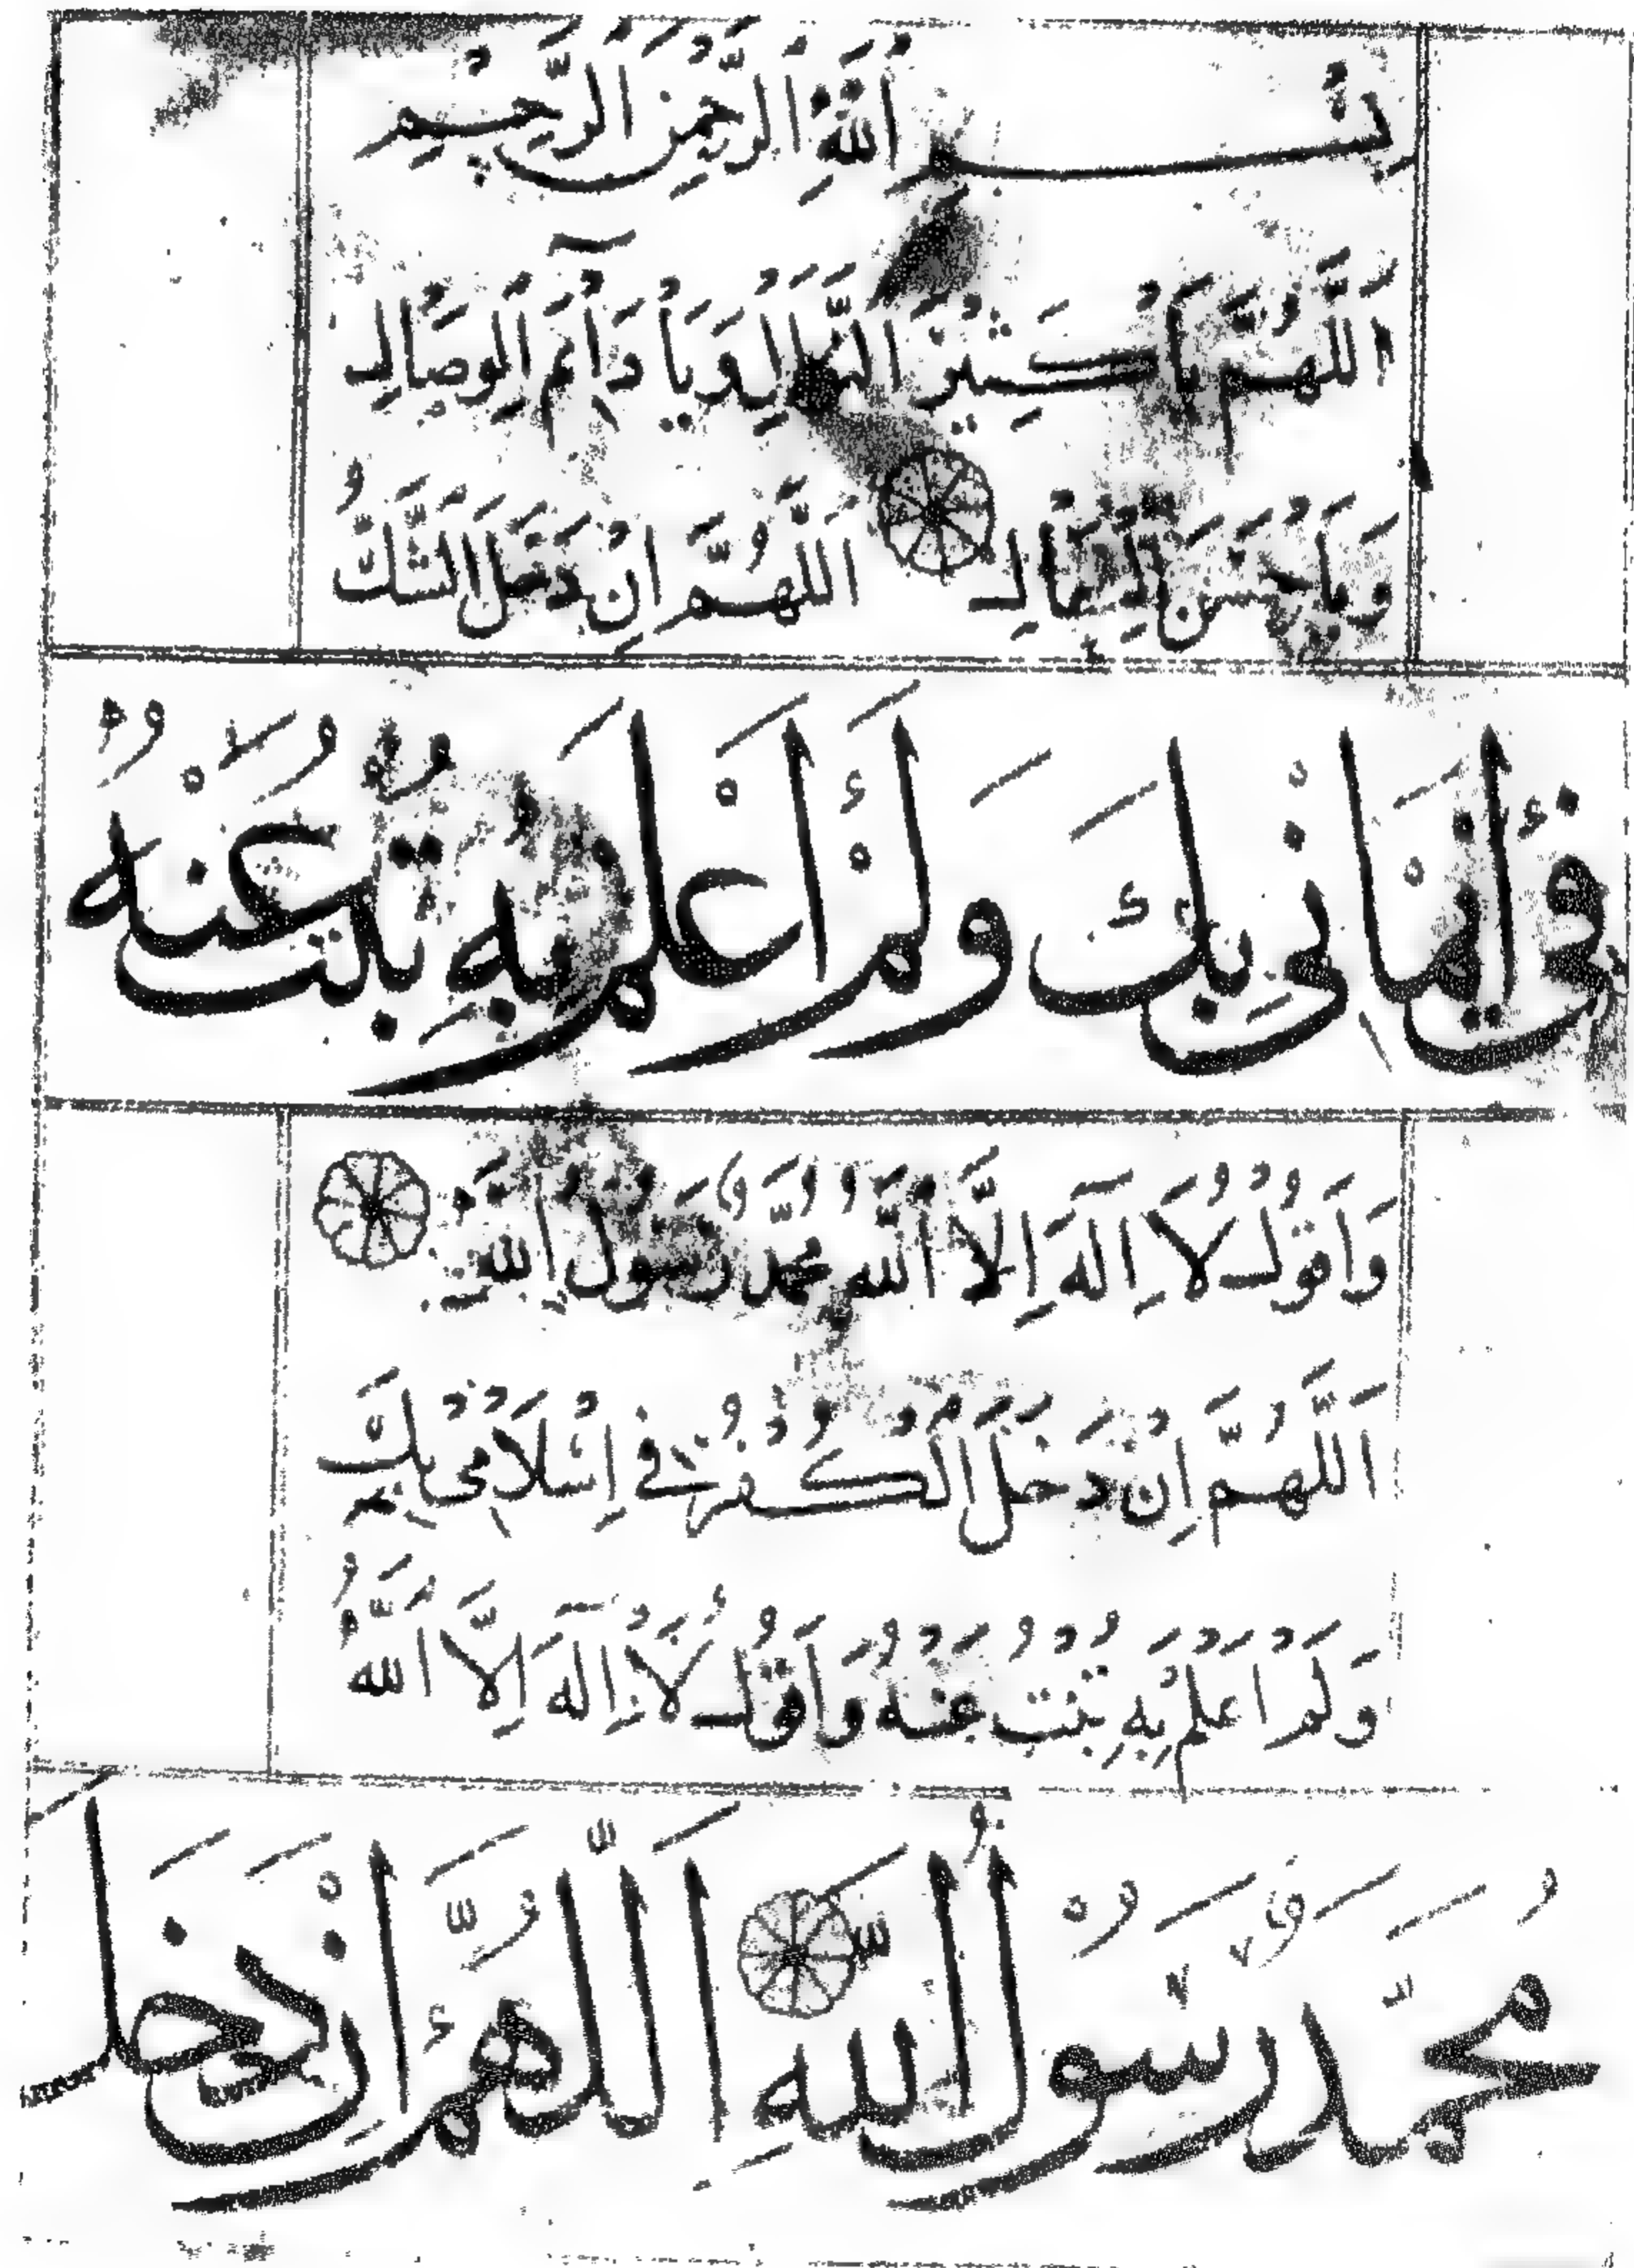 بِسْمِ اللهِ الرَّحْمٰنِ الرَّحِيْمِ
اَللّٰهُمَّ يَا كَثِيْرَ النَّوَالِ وَيَا دَآئِمَ الْوِصَالِ
وَيَا حُسْنَ الْفِعَالِ اَللّٰهُمَّ اِنْ دَخَلَ الشَّكُّ
فِيْ اِيْمَانِيْ بِكَ وَلَمْ اَعْلَمْ بِهٖ تُبْتُ عَنْهُ
وَاَقُوْلُ لَا اِلٰهَ اِلَّا اللهُ مُحَمَّدٌ رَّسُوْلُ اللهِ
اَللّٰهُمَّ اِنْ دَخَلَ الْكُفْرُ فِيْ اِسْلَامِيْ بِكَ
وَلَمْ اَعْلَمْ بِهٖ تُبْتُ عَنْهُ وَاَقُوْلُ لَا اِلٰهَ اِلَّا اللهُ
مُحَمَّدٌ رَّسُوْلُ اللهِ اَللّٰهُمَّ اِنْ دَخَلَ